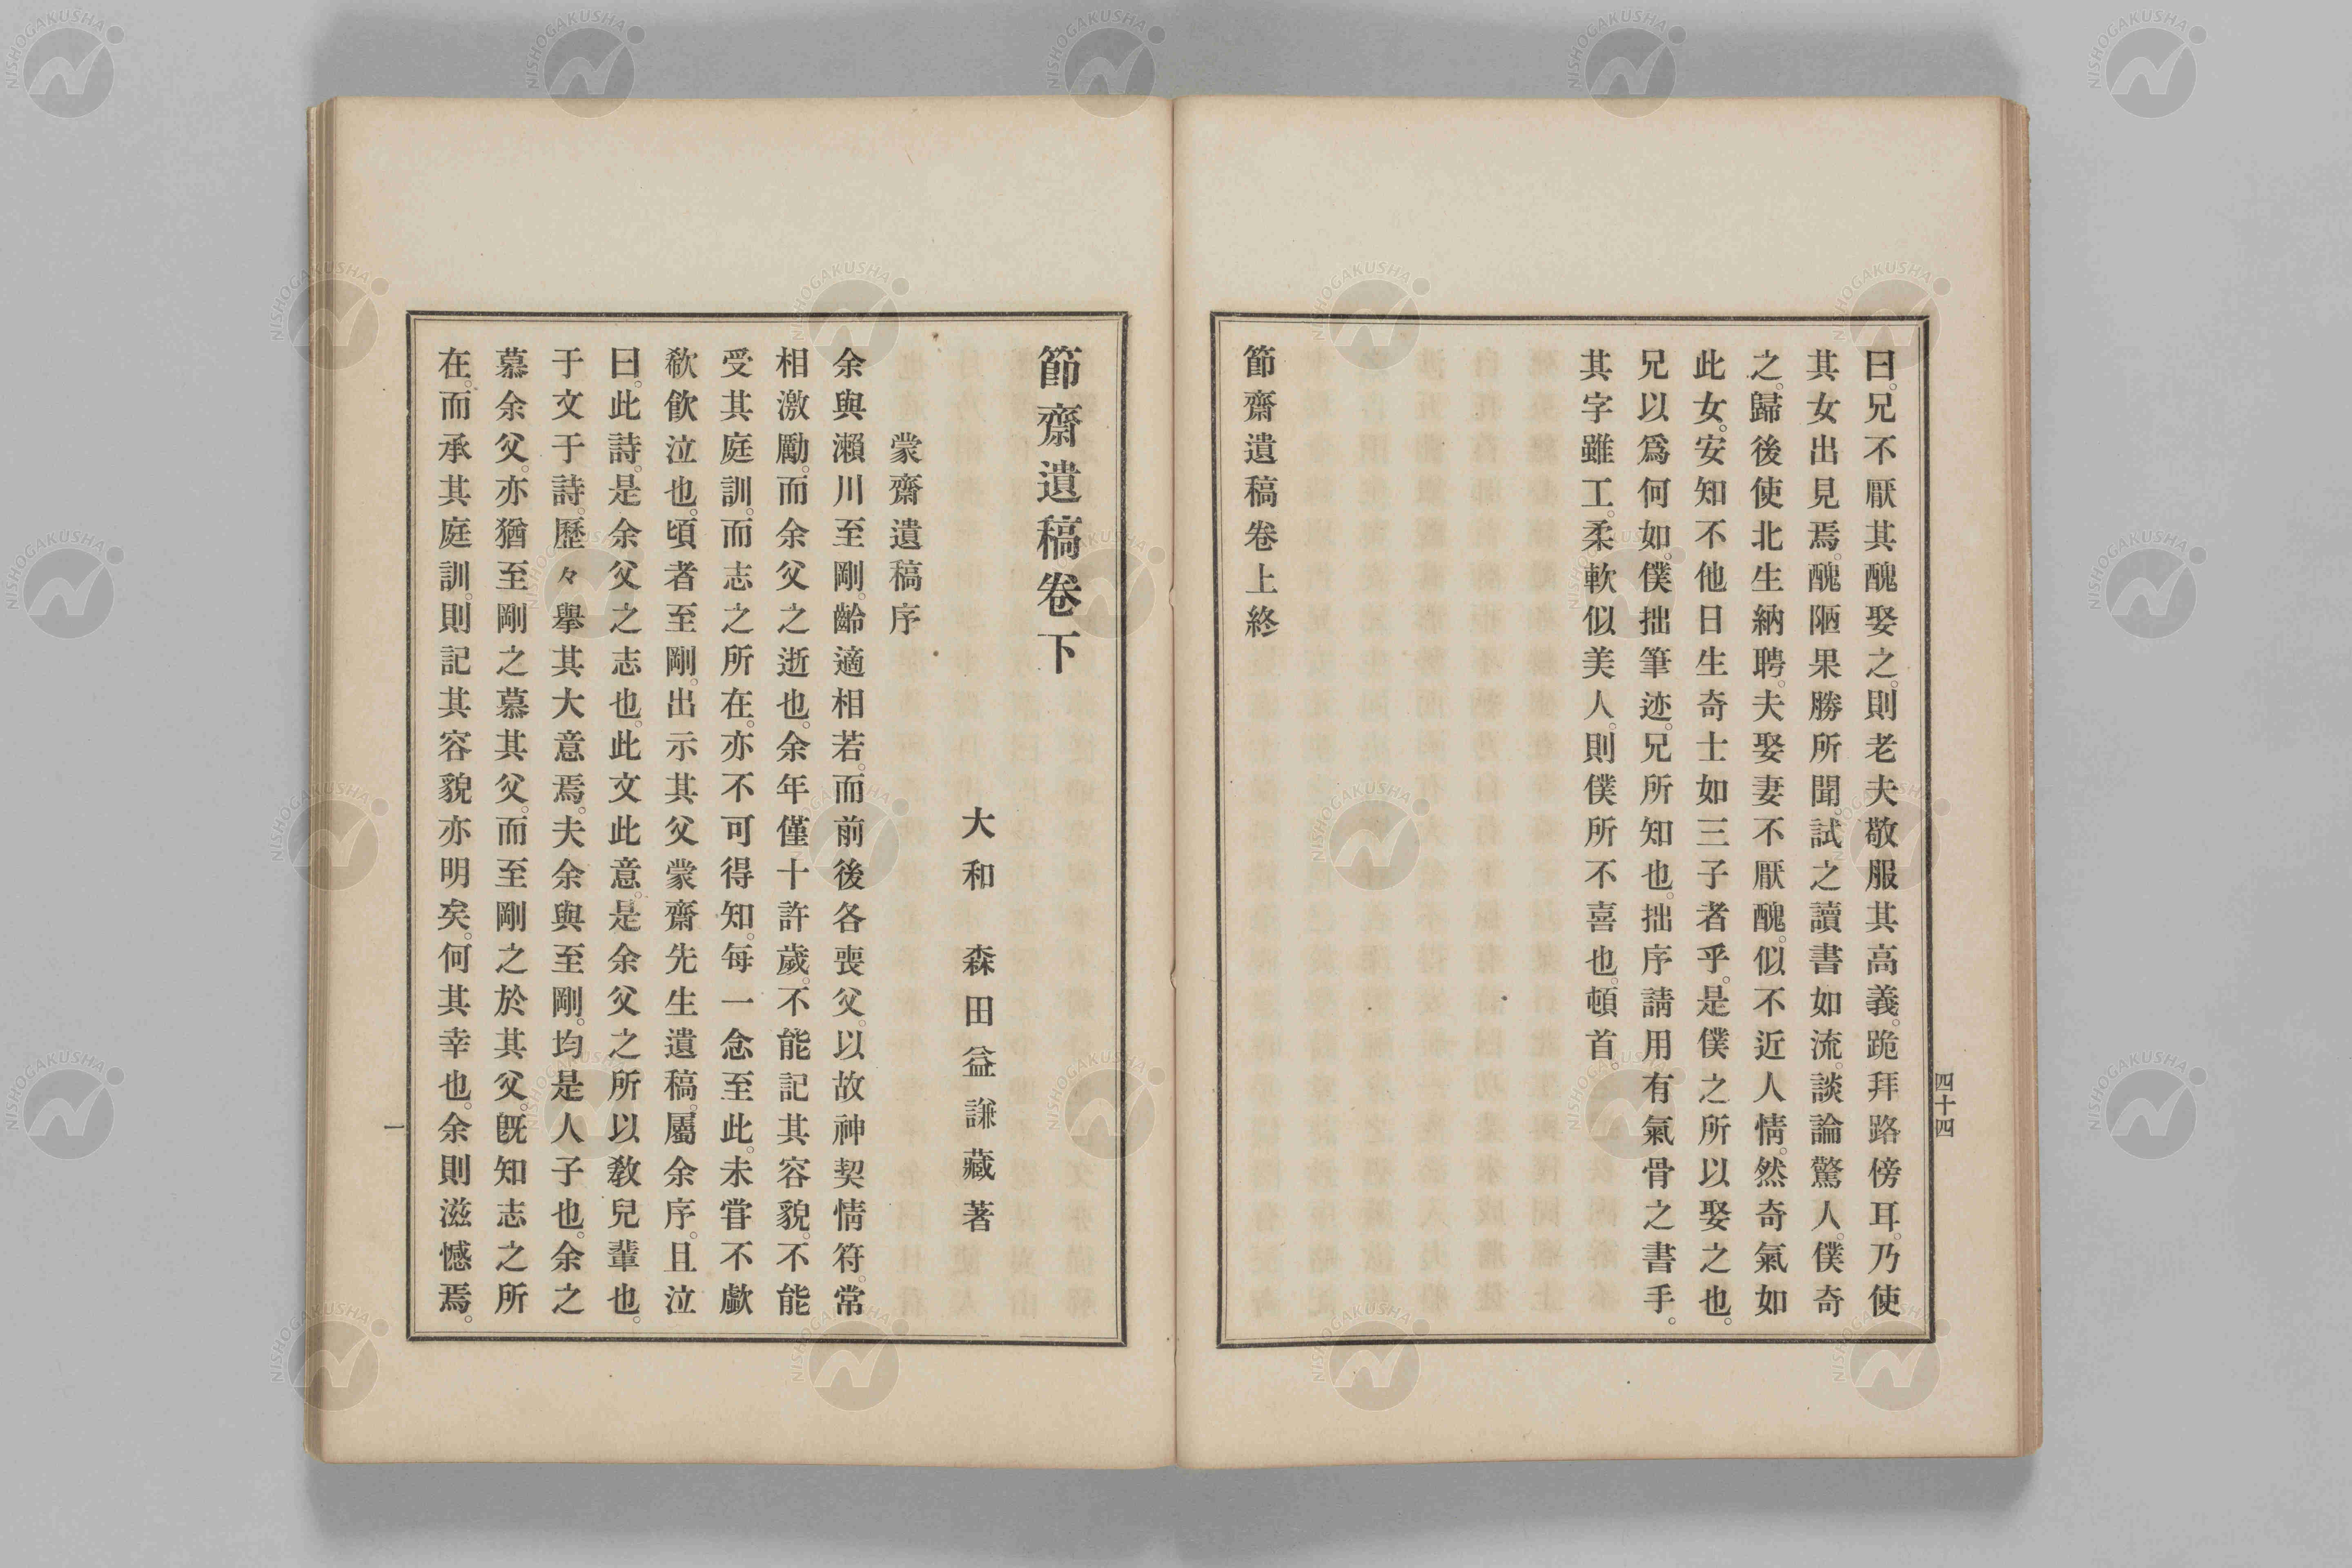 曰。兄不厭其醜娶之。則老夫敬服其高義。跪拜路傍耳。乃使
其女出見焉。醜陋果勝所聞。試之讀書如流。談論驚人。僕奇
之。歸後使北生納聘。夫娶妻不厭醜。似不近人情。然奇氣如
此女。安知不他日生奇士如三子者乎。是僕之所以娶之也。
兄以爲何如。僕拙筆迹。兄所知也。拙序請用有氣骨之書手。
其字雖工。柔軟似美人。則僕所不喜也。頓首。
節齋遺稿卷上終
四十四
節齋遺稿卷下
大和 森田益謙藏著
蒙齋遺稿序
余與瀨川至剛。齡適相若。而前後各喪父。以故神契情符。常
相激勵。而余父之逝也。余年僅十許歲。不能記其容貌。不能
受其庭訓。而志之所在。亦不可得知。每一念至此。未甞不歔
欷飮泣也。頃者至剛。出示其父蒙齋先生遺稿。屬余序。且泣
曰。此詩。是余父之志也。此文此意。是余父之所以敎兒輩也。
于文于詩。歷々擧其大意焉。夫余與至剛。均是人子也。余之
慕余父。亦猶至剛之慕其父。而至剛之於其父。旣知志之所
在。而承其庭訓。則記其容貌亦明矣。何其幸也。余則滋憾焉。
一
NISHOGAKUSHA